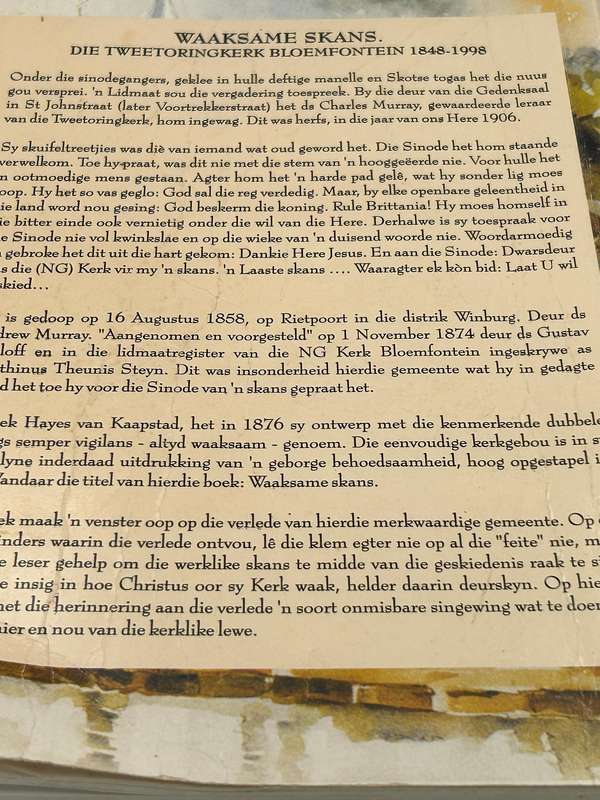 WAAKSAME SKANS.
DIE TWEETORINGKERK BLOEMFONTEIN 1848-1998
Onder die sinodegangers, geklee in hulle deftige manelle en Skotse togas het die nuus
gou versprei. 'n Lidmaat sou die vergadering toespreek. By die deur van die Gedenksaal
in St Johnstraat (later Voortrekkerstraat) het ds Charles Murray, gewaardeerde leraar
van die Tweetoringkerk, hom ingewag. Dit was herfs, in die jaar van ons Here 1906.
Sy skuifeltreetjies was diè van iemand wat oud geword het. Die Sinode het hom staande
verwelkom. Toe hy praat, was dit nie met die stem van 'n hooggeëerde nie. Voor hulle het
'n ootmoedige mens gestaan. Agter hom het 'n harde pad gelê, wat hy sonder lig moes
loop. Hy het so vas geglo: God sal die reg verdedig. Maar, by elke openbare geleentheid in
die land word nou gesing: God beskerm die koning. Rule Brittania! Hy moes homself in
die bitter einde ook vernietig onder die wil van die Here. Derhalwe is sy toespraak voor
Sinode nie vol kwinkslae en op die wieke van 'n duisend woorde nie. Woordarmoedig
gebroke het dit uit die hart gekom: Dankie Here Jesus. En aan die Sinode: Dwarsdeur
die (NG) Kerk vir my 'n skans. 'n Laaste skans .... Waaragter ek kòn bid: Laat U wil
skied...
is gedoop op 16 Augustus 1858, op Rietpoort in die distrik Winburg. Deur ds
drew Murray. "Aangenomen en voorgesteld" op 1 November 1874 deur ds Gustav
loff en in die lidmaatregister van die NG Kerk Bloemfontein ingeskrywe as
thinus Theunis Steyn. Dit was insonderheid hierdie gemeente wat hy in gedagte
d het toe hy voor die Sinode van 'n skans gepraat het.
ek Hayes van Kaapstad, het in 1876 sy ontwerp met die kenmerkende dubbele
gs semper vigilans - altyd waaksaam - genoem. Die eenvoudige kerkgebou is in s
lyne inderdaad uitdrukking van 'n geborge behoedsaamheid, hoog opgestapel i
Vandaar die titel van hierdie boek: Waaksame skans.
ek maak 'n venster oop op die verlede van hierdie merkwaardige gemeente. Op
inders waarin die verlede ontvou, lê die klem egter nie op al die "feite" nie, m
e leser gehelp om die werklike skans te midde van die geskiedenis raak te si
e insig in hoe Christus oor sy Kerk waak, helder daarin deurskyn. Op hie
het die herinnering aan die verlede 'n soort onmisbare singewing wat te doen
hier en nou van die kerklike lewe.